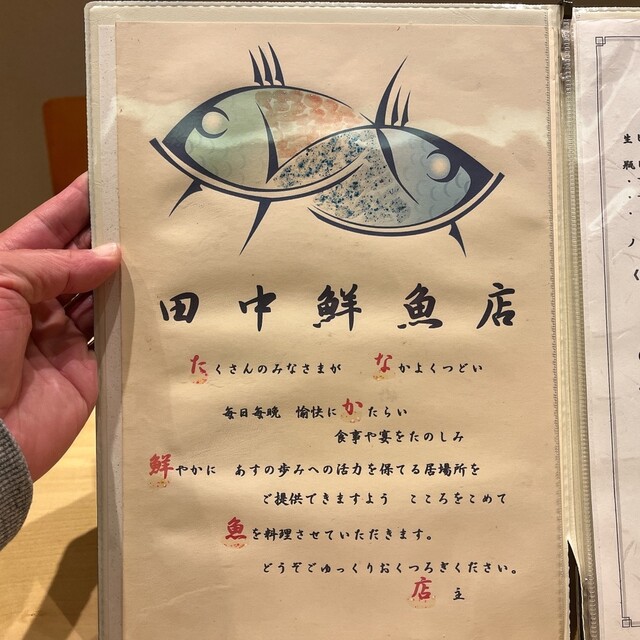 田中鮮魚店
たくさんのみなさまが なかよくつどい
毎日毎晩 愉快にかたらい
食事や宴をたのしみ
鮮やかに あすの歩みへの活力を保てる居場所を
ご提供できますよう こころをこめて
魚を料理させていただきます。
どうぞごゆっくりおくつろぎください。
店主